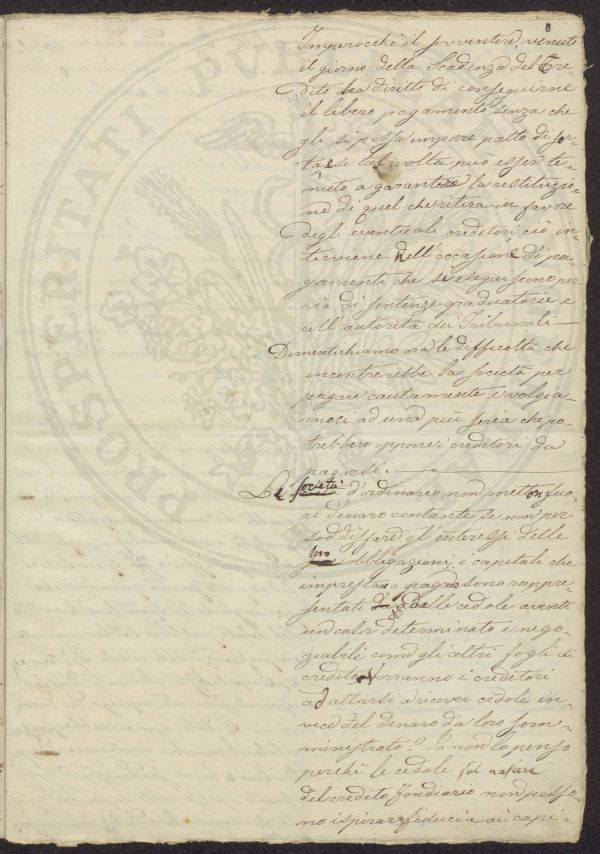 Imperocchè il sovventore venuto
il giorno della Scadenza del Cre-
dito ha diritto di conseguirne
il libero pagamento senza che
gli si possa imporre patto di sor-
ta, e se tal volta può esser te-
nuto a garantire la restituzio-
ne di quel che ritira in favore
degli eventuali creditori ciò in-
terviene nell'occasione di pa-
gamenti che si eseguiscono per
via di sentenze graduatorie e
coll'autorità dei Tribunali —
Dimentichiamo ora le difficoltà che
incontrerebbe la società per
pagare cautamente e volgia-
moci ad una più seria che po-
trebbero opporre i creditori da
pagarsi. —
Le società d'ordinario non metton fuo-
ri denaro contante se non per
soddisfare gl'interessi delle
loro obbligazioni; i capitali che
imprestano o pagano sono rappre-
sentati dalle cedole aventi
un valor determinato e nego-
ziabili come gli altri fogli di
credito. Vorranno i creditori
adattarsi a ricever cedole in-
vece del denaro da loro som-
ministrato? Io non lo penso
perchè le cedole sul nascere
del credito fondiario non posso-
no ispirar fiducia ai capi-
PROSPERITATI PUBL